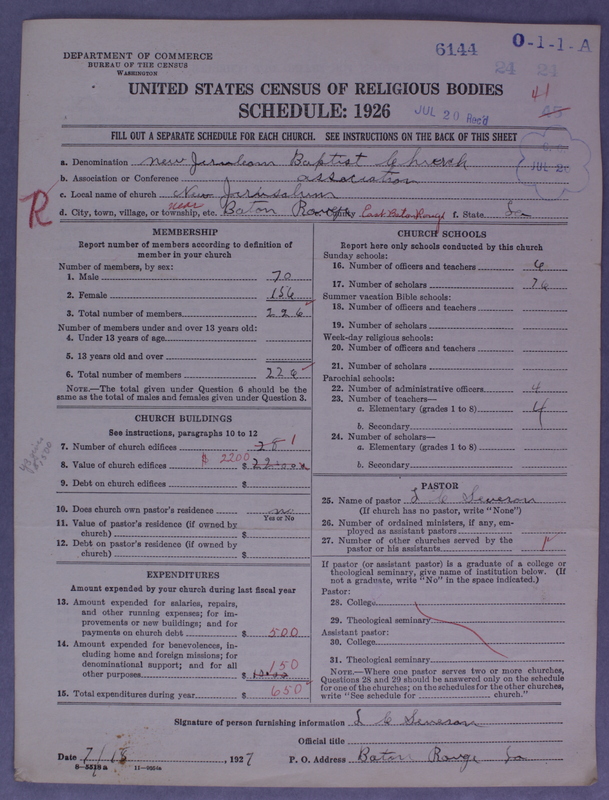 6144 O-1-1-A
DEPARTMENT OF COMMERCE
BUREAU OF THE CENSUS
WASHINGTON
24 24
41
45
UNITED STATES CENSUS OF RELIGIOUS BODIES
SCHEDULE: 1926
JUL 20 Rec'd
FILL OUT A SEPARATE SCHEDULE FOR EACH CHURCH. SEE INSTRUCTIONS ON THE BACK OF THIS SHEET
JUL 2
a. Denomination New Jerusleam Baptist Church
b. Association or Conference association
c. Local name of church New Jarusalum
R
near
d. City, town, village, or township, etc. Baton Rouge East Baton Rouge f. State La
MEMBERSHIP
Report number of members according to definition of
member in your church
Number of members, by sex:
1. Male 70
2. Female 156
3. Total number of members 226
Number of members under and over 13 years old:
4. Under 13 years of age
5. 13 years old and over
6. Total number of members 226
NOTE.—The total given under Question 6 should be the
same as the total of males and females given under Question 3.
CHURCH BUILDINGS
See instructions, paragraphs 10 to 12
7. Number of church edifices 1
$ 2200
8. Value of church edifices $
9. Debt on church edifices $
10. Does church own pastor's residence no
Yes or No
11. Value of pastor's residence (if owned by
church) $
12. Debt on pastor's residence (if owned by
church) $
EXPENDITURES
Amount expended by your church during last fiscal year
13. Amount expended for salaries, repairs,
and other running expenses; for im-
provements or new buildings; and for
payments on church debt $ 500
14. Amount expended for benevolences, in-
cluding home and foreign missions; for
denominational support; and for all
other purposes $ 150
15. Total expenditures during year $ 650
CHURCH SCHOOLS
Report here only schools conducted by this church
Sunday schools:
16. Number of officers and teachers 6
17. Number of scholars 76
Summer vacation Bible schools:
18. Number of officers and teachers
19. Number of scholars
Week-day religious schools:
20. Number of officers and teachers
21. Number of scholars
Parochial schools:
22. Number of administrative officers 4
23. Number of teachers—
a. Elementary (grades 1 to 8) 4
b. Secondary
24. Number of scholars—
a. Elementary (grades 1 to 8)
b. Secondary
PASTOR
25. Name of pastor L C Severson
(If church has no pastor, write "None")
26. Number of ordained ministers, if any, em-
ployed as assistant pastors
27. Number of other churches served by the
pastor or his assistants 1
If pastor (or assistant pastor) is a graduate of a college or
theological seminary, give name of institution below. (If
not a graduate, write "No" in the space indicated.)
Pastor:
28. College
29. Theological seminary
Assistant pastor:
30. College
31. Theological seminary
NOTE.—Where one pastor serves two or more churches,
Questions 28 and 29 should be answered only on the schedule
for one of the churches; on the schedules for the other churches,
write "See schedule for church."
Signature of person furnishing information L C Severson
Official title
Date 7/18, 1927 P. O. Address Baton Rouge La
8-5518 a 11-9264a